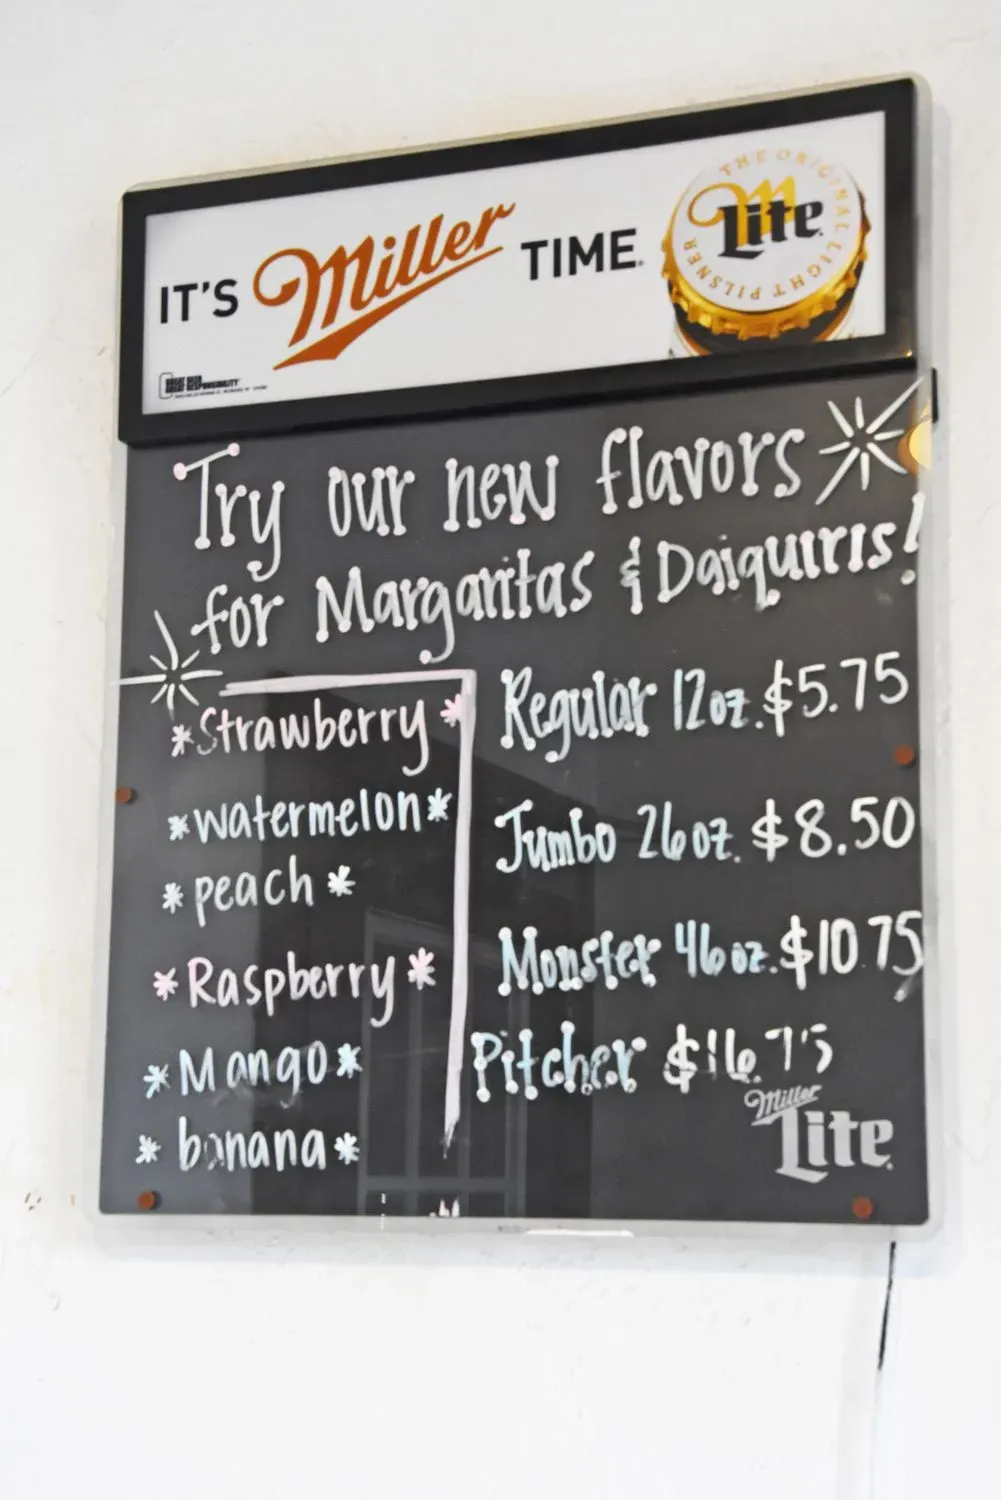 IT'S Miller TIME.
THE ORIGINAL LIGHT PILSNER
Lite
GREAT BEER
GREAT RESPONSIBILITY
Try our new flavors
for Margaritas & Daiquiris!
*Strawberry*
*watermelon*
*peach*
*Raspberry*
*Mango*
*banana*
Regular 12oz. $5.75
Jumbo 26oz. $8.50
Monster 46oz. $10.75
Pitcher $16.75
Miller
Lite